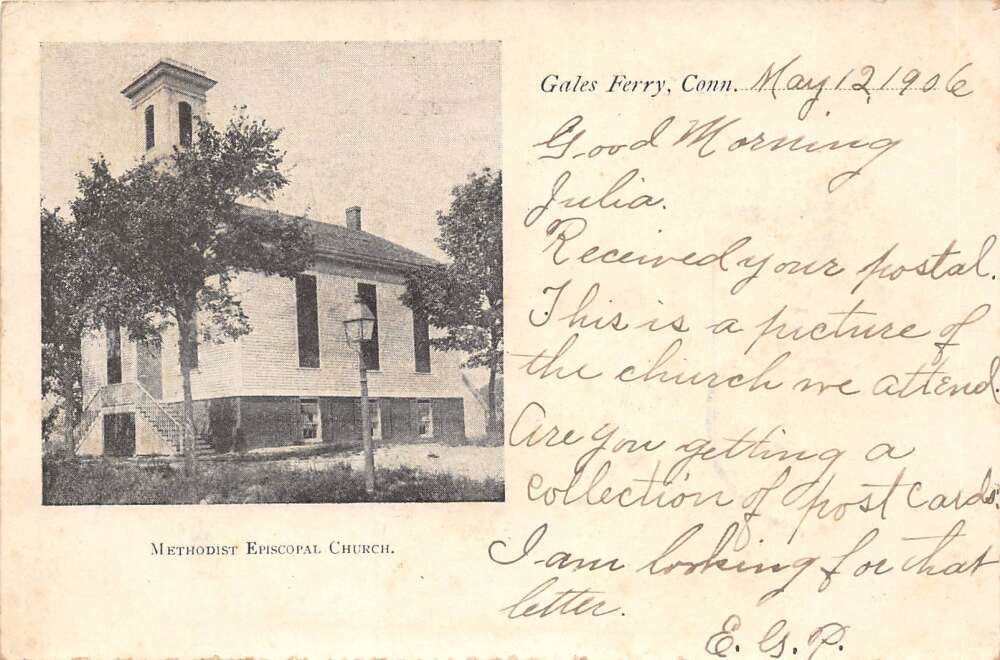 Gales Ferry, Conn. May 12, 1906
Good Morning
Julia.
Received your postal.
This is a picture of
the church we attend.
Are you getting a
collection of post cards.
I am looking for that
letter.
E. G. P.
METHODIST EPISCOPAL CHURCH.